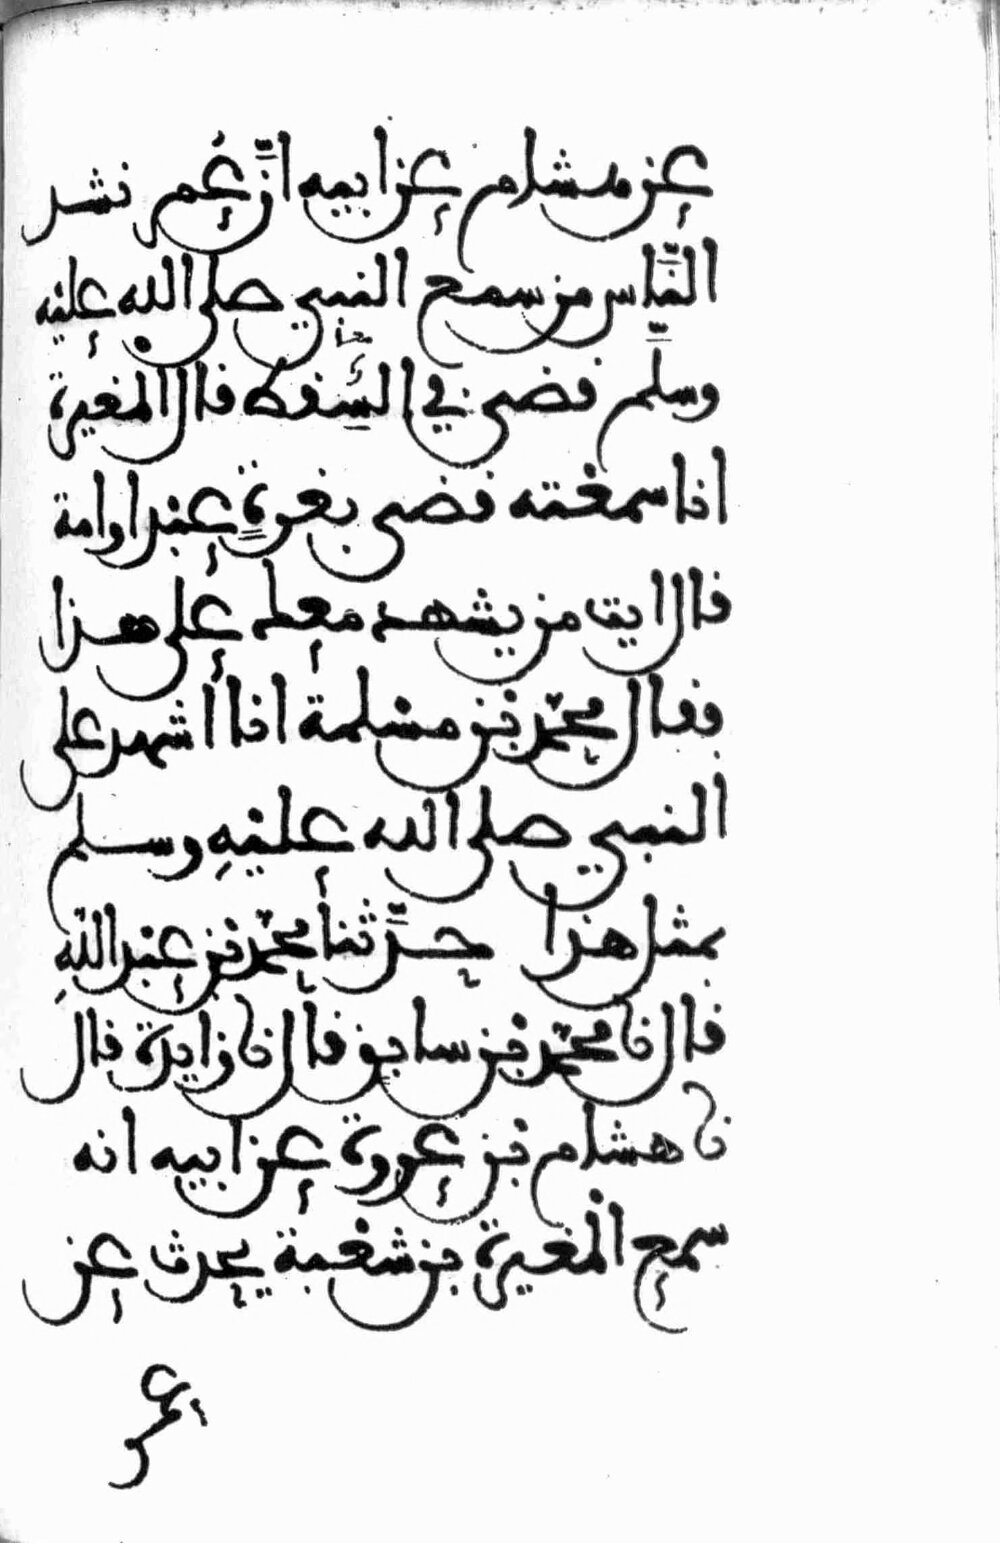 عن هشام عن ابيه انَّ عُمر نشد
النَّاس من سمع النبي صلى الله عليه
وسلَّم قضى في السِّقط قال المغيرة
انا سمعته قضى بغرةٍ عبد او امة
قال ايت من يشهد معك على هذا
فقال محمّد بن مسلمة انا اشهد على
النبي صلى الله عليهِ وسلم
بمثل هذا حدَّثنا محمّد بن عبد اللهِ
قال نا محمّد بن سابق قال نا زايدة قال
نا هشام بن عروة عن ابيه انه
سمع المغيرة بن شعبة يحدث عن
عمر